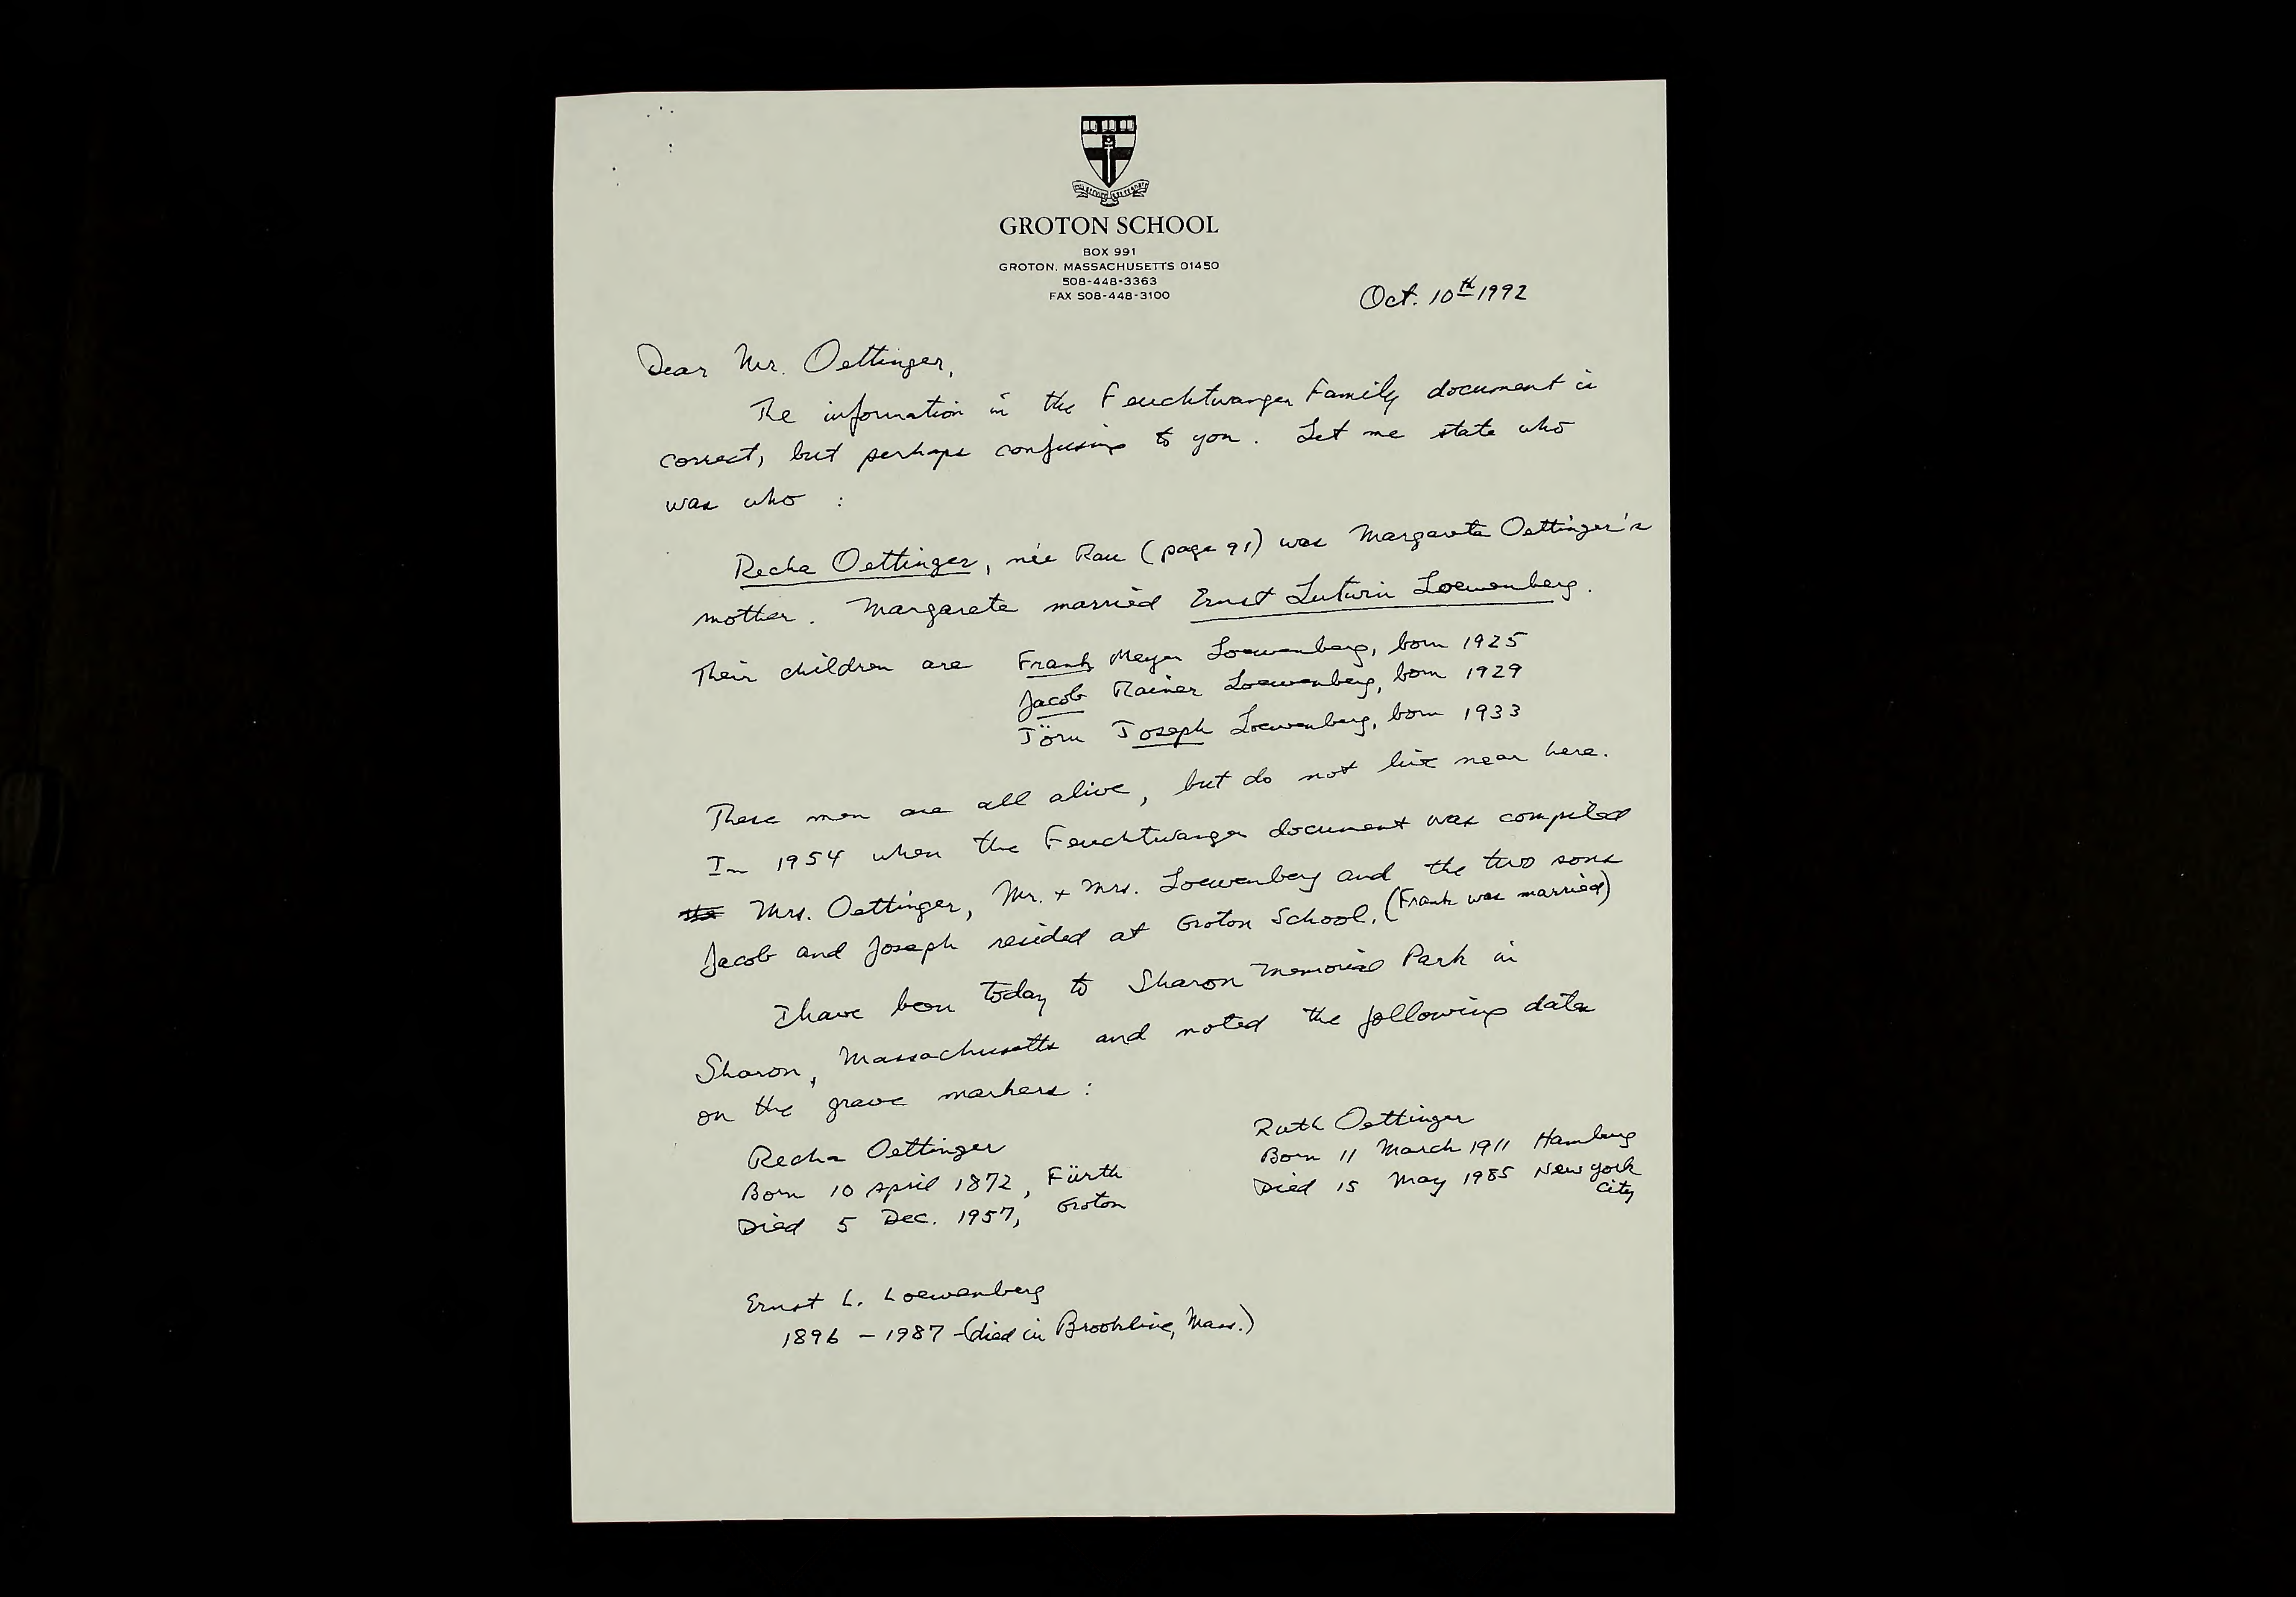 GROTON SCHOOL
BOX 991
GROTON, MASSACHUSETTS 01450
508-448-3363
FAX 508-448-3100
Oct. 10th 1992
Dear Mr. Oettinger,
The information in the Feuchtwanger Family document is
correct, but perhaps confusing to you. Let me state who
was who :
Recha Oettinger, née Rau (page 91) was Margarete Oettinger's
mother. Margarete married Ernst Lutwin Loewenberg.
Their children are Frank Meyer Loewenberg, born 1925
Jacob Rainer Loewenberg, born 1929
Jörn Joseph Loewenberg, born 1933
These men are all alive, but do not live near here.
In 1954 when the Feuchtwanger document was compiled
the Mrs. Oettinger, Mr. + Mrs. Loewenberg and the two sons
Jacob and Joseph resided at Groton School. (Frank was married)
I have been today to Sharon Memorial Park in
Sharon, Massachusetts and noted the following data
on the grave markers :
Recha Oettinger
Born 10 April 1872, Fürth
Died 5 Dec. 1957, Groton
Ruth Oettinger
Born 11 March 1911 Hamburg
Died 15 May 1985 New York
City
Ernst L. Loewenberg
1896 - 1987 (died in Brookline, Mass.)